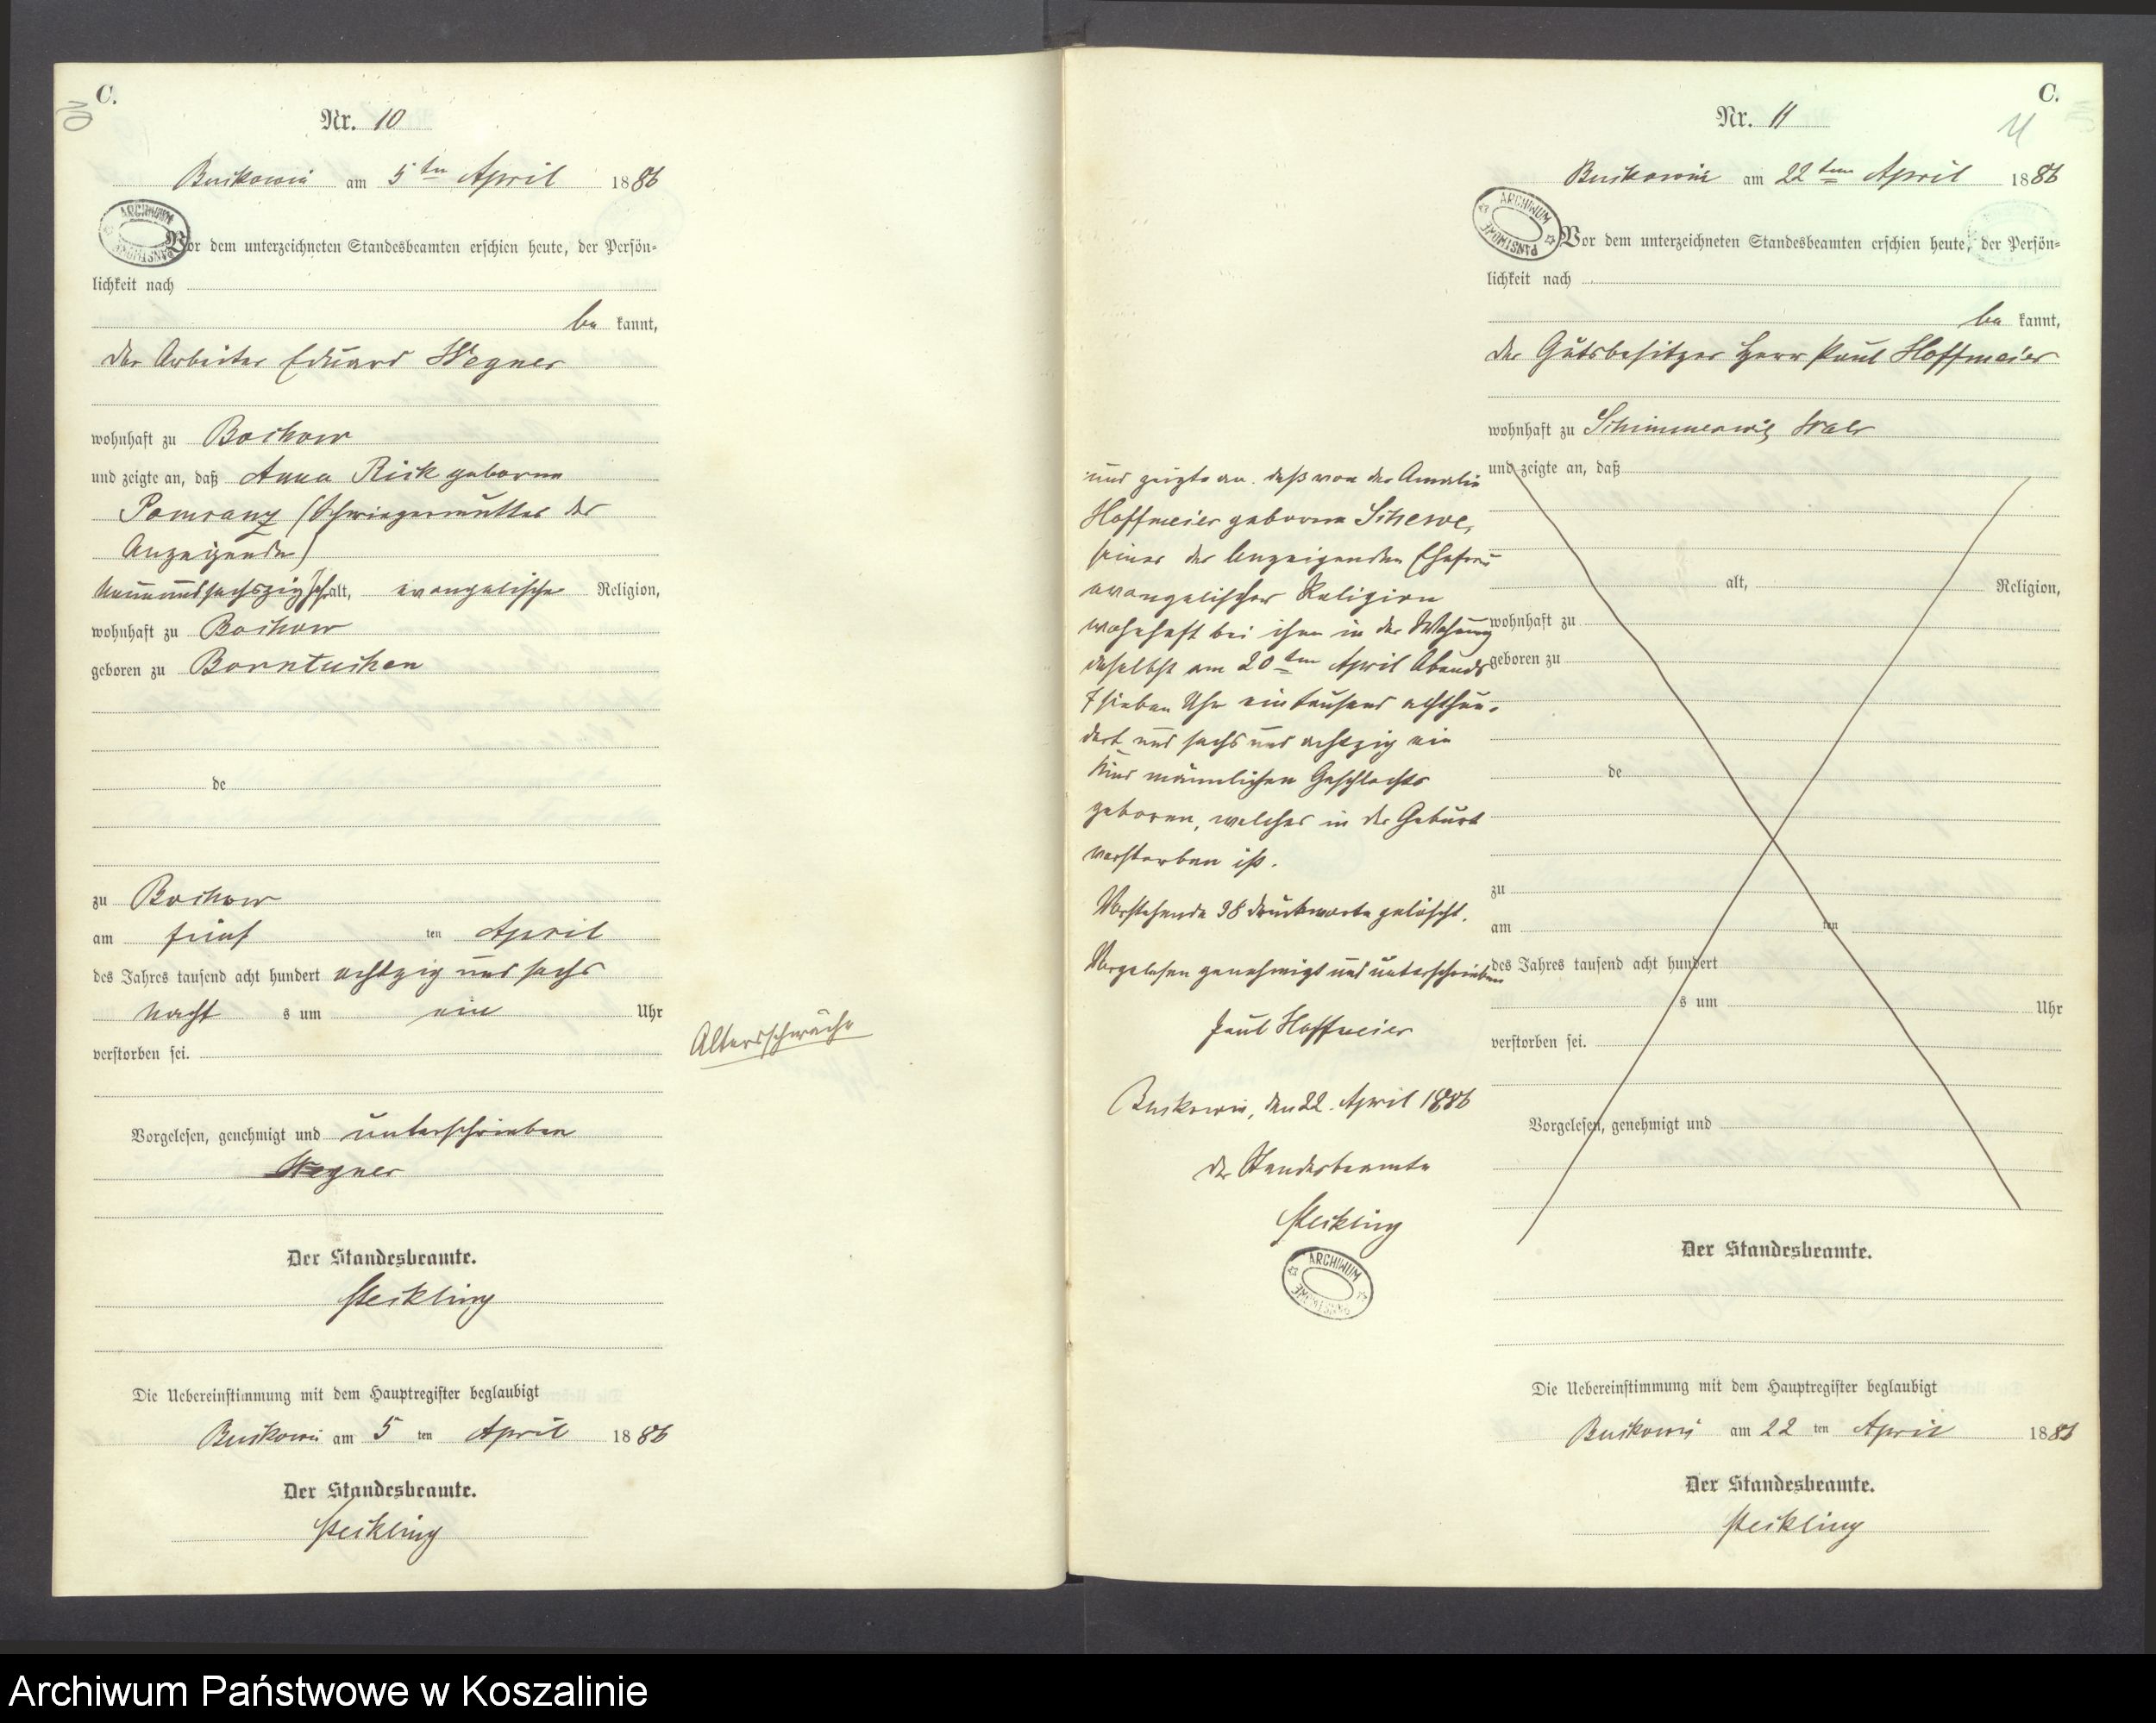 C.
10
Nr. 10
Buckowin am 5ten April 1886
ARCHIWUM PAŃSTWOWE
Vor dem unterzeichneten Standesbeamten erschien heute, der Persön-
lichkeit nach
be kannt,
der Arbeiter Eduard Wegner
wohnhaft zu Bochow
und zeigte an, daß Anna Rick geborene
Pomranz (Schwiegermutter des
Anzeigenden)
neunundsechszig J. alt, evangelische Religion,
wohnhaft zu Bochow
geboren zu Borntuchen
de
zu Bochow
am fünf ten April
des Jahres tausend acht hundert achtzig und sechs
Nacht s um ein Uhr
verstorben sei.
Altersschwäche
Vorgelesen, genehmigt und unterschrieben
Wegner
Der Standesbeamte.
Steckling
Die Uebereinstimmung mit dem Hauptregister beglaubigt
Buckowin am 5 ten April 1886
Der Standesbeamte.
Steckling
C.
11
Nr. 11
Buckowin am 22ten April 1886
ARCHIWUM PAŃSTWOWE
Vor dem unterzeichneten Standesbeamten erschien heute, der Persön-
lichkeit nach
be kannt,
der Gutsbesitzer Herr Paul Hoffmeier
wohnhaft zu Schimmerwitz
und zeigte an, daß
alt, Religion,
wohnhaft zu
geboren zu
de
zu
am ten
des Jahres tausend acht hundert
s um Uhr
verstorben sei.
Vorgelesen, genehmigt und
und zeigte an, daß von der Amalie
Hoffmeier geborene Schewe,
seiner des Anzeigenden Ehefrau
evangelischer Religion
wohnhaft bei ihm in der Wohnung
daselbst am 20ten April Abends
7 sieben Uhr eintausend achthun-
dert und sechs und achtzig ein
Kind männlichen Geschlechts
geboren, welches in der Geburt
verstorben ist.
Vorstehende 38 Druckworte gelöscht.
Vorgelesen genehmigt und unterschrieben
Paul Hoffmeier
Buckowin, den 22. April 1886
Der Standesbeamte
Steckling
ARCHIWUM PAŃSTWOWE
Der Standesbeamte.
Die Uebereinstimmung mit dem Hauptregister beglaubigt
Buckowin am 22 ten April 1886
Der Standesbeamte.
Steckling
Archiwum Państwowe w Koszalinie